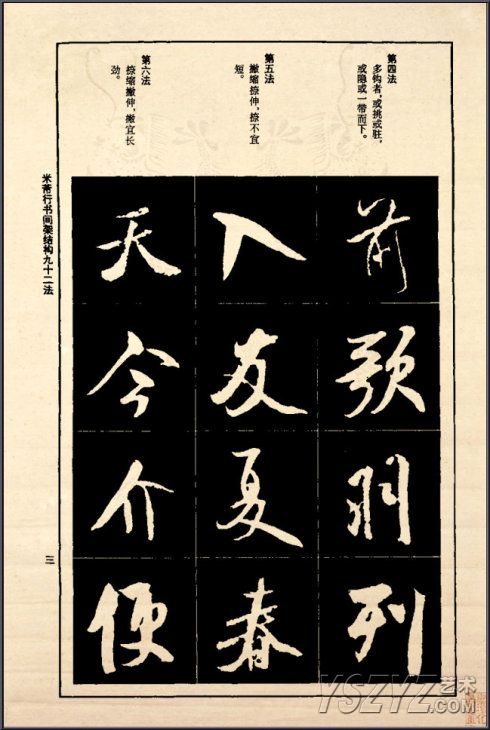 第四法
多钩者，或挑或驻，
或隐或一带而下。
第五法
撇缩捺伸，捺不宜
短。
第六法
捺缩撇伸，撇宜长
劲。
前歌羽列
入友夏春
天今介便
米芾行书间架结构九十二法
三
YSZYZ艺术
.COM